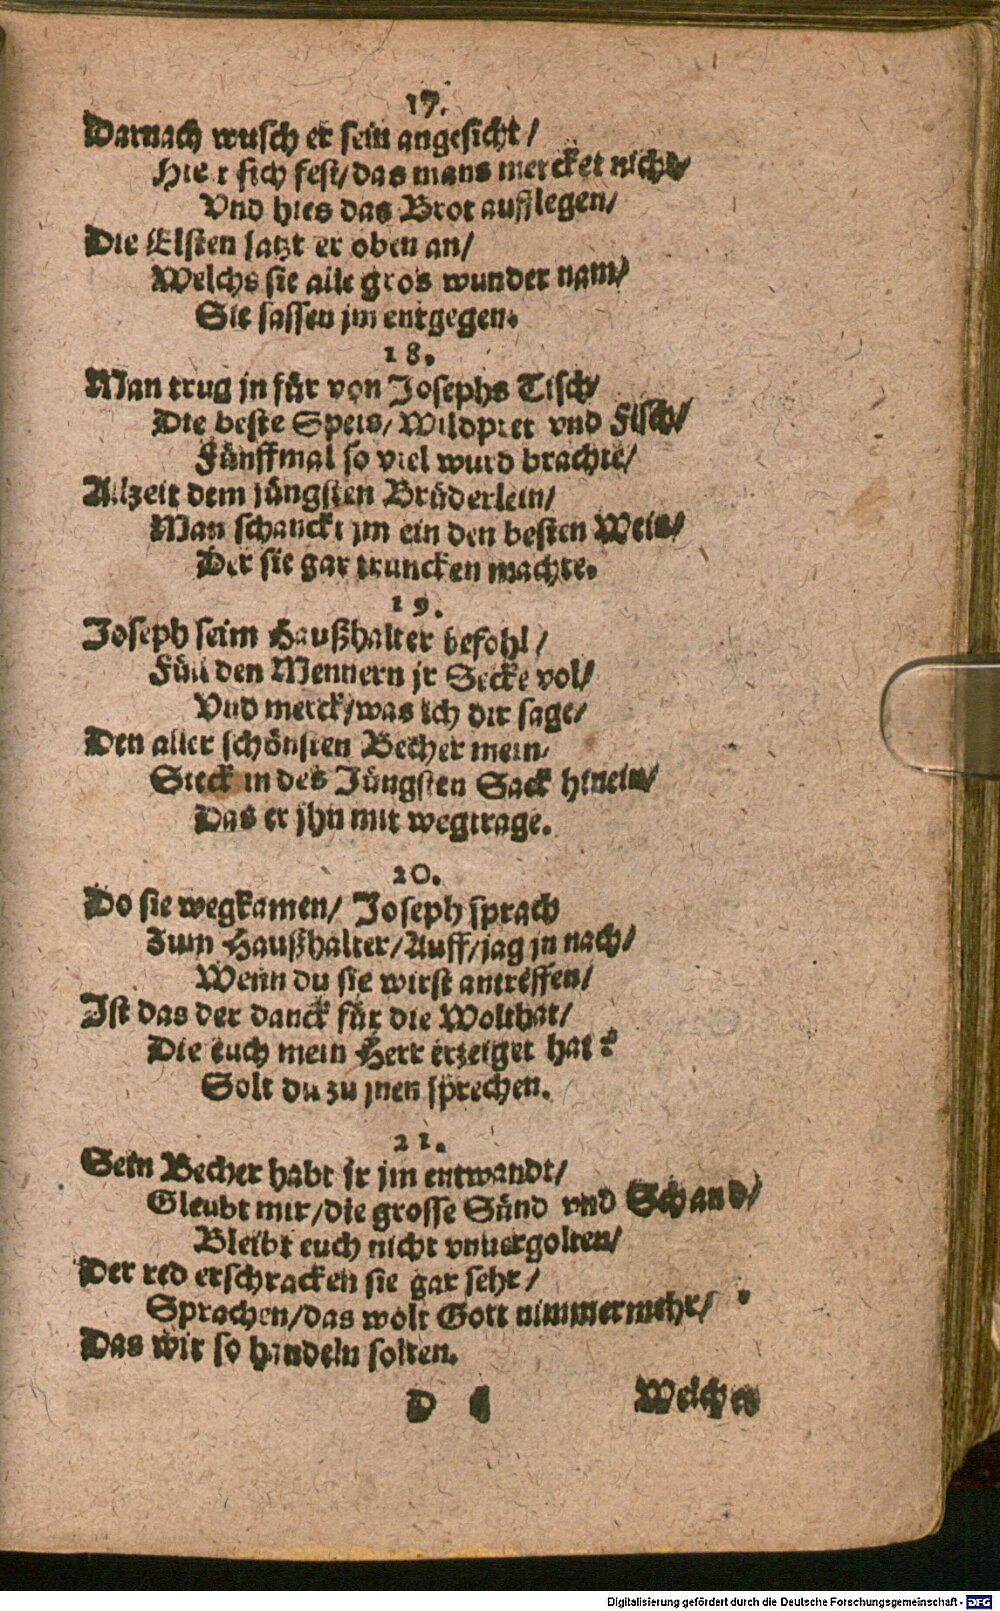 17.
Darnach wusch er sein angesicht/
Hielt sich fest/das mans mercket nicht/
Vnd hies das Brot aufflegen/
Die Elsten satzt er oben an/
Welchs sie alle gros wunder nam/
Sie sassen jm entgegen.
18.
Man trug jn für von Josephs Tisch/
Die beste Speis/Wildpret vnd Fisch/
Fünffmal so viel wurd brachte/
Allzeit dem jüngsten Brüderlein/
Man schanckt jm ein den besten Wein/
Der sie gar truncken machte.
19.
Joseph seim Haußhalter befohl/
Füll den Mennern jr Secke vol/
Vnd merck/was ich dir sage/
Den aller schönsten Becher mein/
Steck in des Jüngsten Sack hinein/
Das er jhn mit wegtrage.
20.
Do sie wegkamen/Joseph sprach
Zum Haußhalter/Auff/jag jn nach/
Wenn du sie wirst antreffen/
Ist das der danck für die Wolthat/
Die euch mein Herr erzeiget hat?
Solt du zu jnen sprechen.
21.
Sein Becher habt jr jm entwandt/
Gleubt mir/die grosse Sünd vnd Schand/
Bleibt euch nicht vnuergolten/
Der red erschracken sie gar sehr/
Sprachen/das wolt Gott nimmermehr/
Das wir so handeln solten.
D
Welches
Digitalisierung gefördert durch die Deutsche Forschungsgemeinschaft - DFG